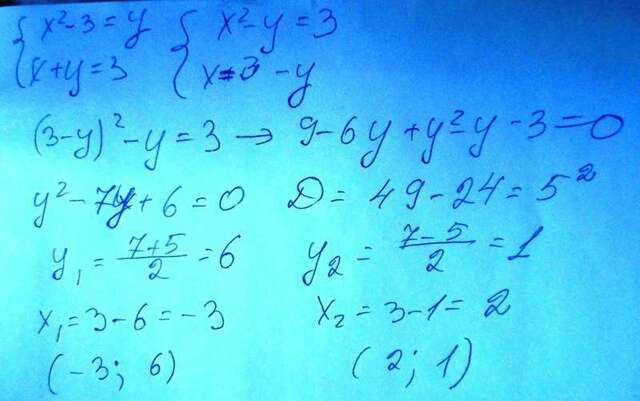 { x² - 3 = y { x² - y = 3
{ x + y = 3 { x = 3 - y
(3-y)² - y = 3 → 9 - 6y + y² - y - 3 = 0
y² - 7y + 6 = 0 D = 49 - 24 = 5²
y₁ = (7+5)/2 = 6 y₂ = (7-5)/2 = 1
x₁ = 3 - 6 = -3 x₂ = 3 - 1 = 2
(-3; 6) (2; 1)